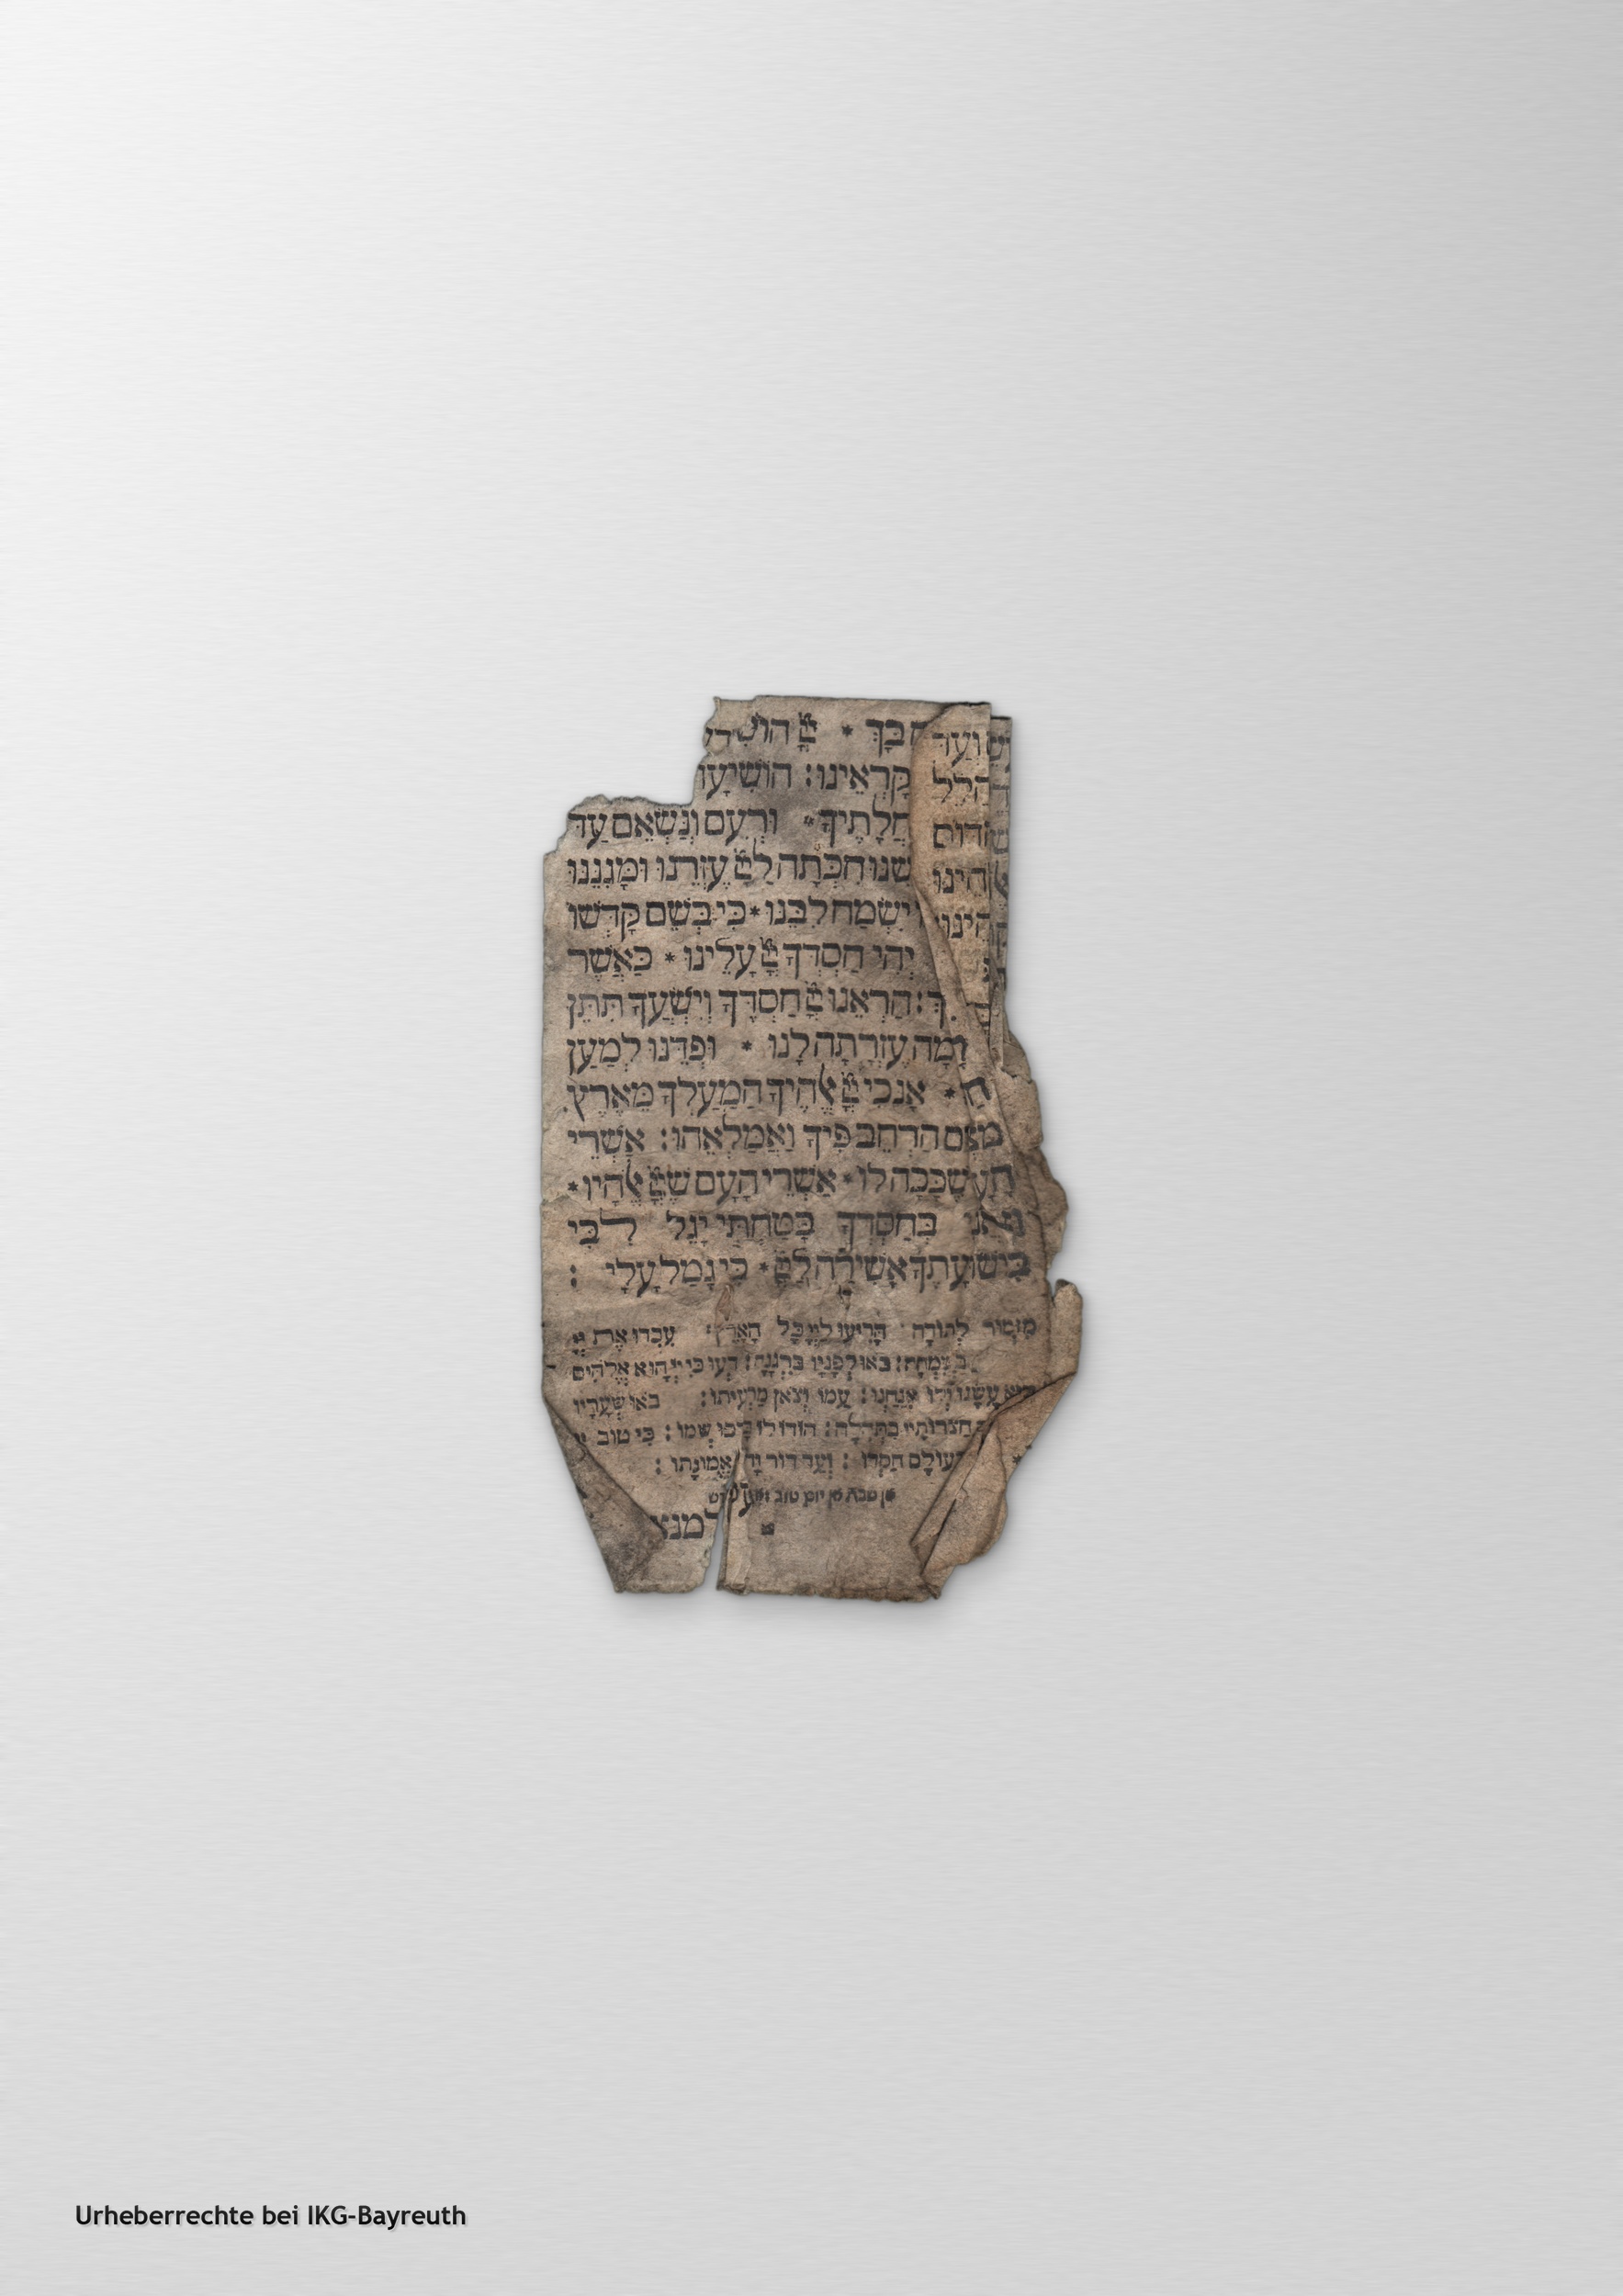 יְיָ הוֹשִׁיעָ
קָרְאֵינוּ: הוֹשִׁיעָ
נַחֲלָתֶיךָ * וּרְעֵם וְנַשְּׂאֵם עַד
חִכְּתָה לַיְיָ עֶזְרֵנוּ וּמָגִנֵּנוּ
יִשְׂמַח לִבֵּנוּ * כִּי בְשֵׁם קָדְשׁוֹ
יְהִי חַסְדְּךָ יְיָ עָלֵינוּ * כַּאֲשֶׁר
הַרְאֵנוּ יְיָ חַסְדֶּךָ וְיֶשְׁעֲךָ תִּתֶּן
קוּמָה עֶזְרָתָה לָּנוּ * וּפְדֵנוּ לְמַעַן
* אָנֹכִי יְיָ אֱלֹהֶיךָ הַמַּעַלְךָ מֵאֶרֶץ
הַרְחֶב פִּיךָ וַאֲמַלְאֵהוּ: אַשְׁרֵי
הָעָם שֶׁכָּכָה לּוֹ * אַשְׁרֵי הָעָם שֶׁיְיָ אֱלֹהָיו *
וַאֲנִי בְּחַסְדְּךָ בָטַחְתִּי יָגֵל לִבִּי
בִּישׁוּעָתֶךָ אָשִׁירָה לַיְיָ * כִּי גָמַל עָלָי :
מִזְמוֹר לְתוֹדָה הָרִיעוּ לַיְיָ כָּל הָאָרֶץ: עִבְדוּ אֶת יְיָ
בְּשִׂמְחָה: בֹּאוּ לְפָנָיו בִּרְנָנָה: דְּעוּ כִּי יְיָ הוּא אֱלֹהִים
הוּא עָשָׂנוּ וְלוֹ אֲנַחְנוּ: עַמּוֹ וְצֹאן מַרְעִיתוֹ: בֹּאוּ שְׁעָרָיו
חֲצֵרוֹתָיו בִּתְהִלָּה: הוֹדוּ לוֹ בָּרְכוּ שְׁמוֹ: כִּי טוֹב יְיָ
לְעוֹלָם חַסְדּוֹ : וְעַד דּוֹר וָדֹר אֱמוּנָתוֹ :
יום טוב
למנצ
וָעֶד
הִינוּ
הִינוּ
Urheberrechte bei IKG-Bayreuth